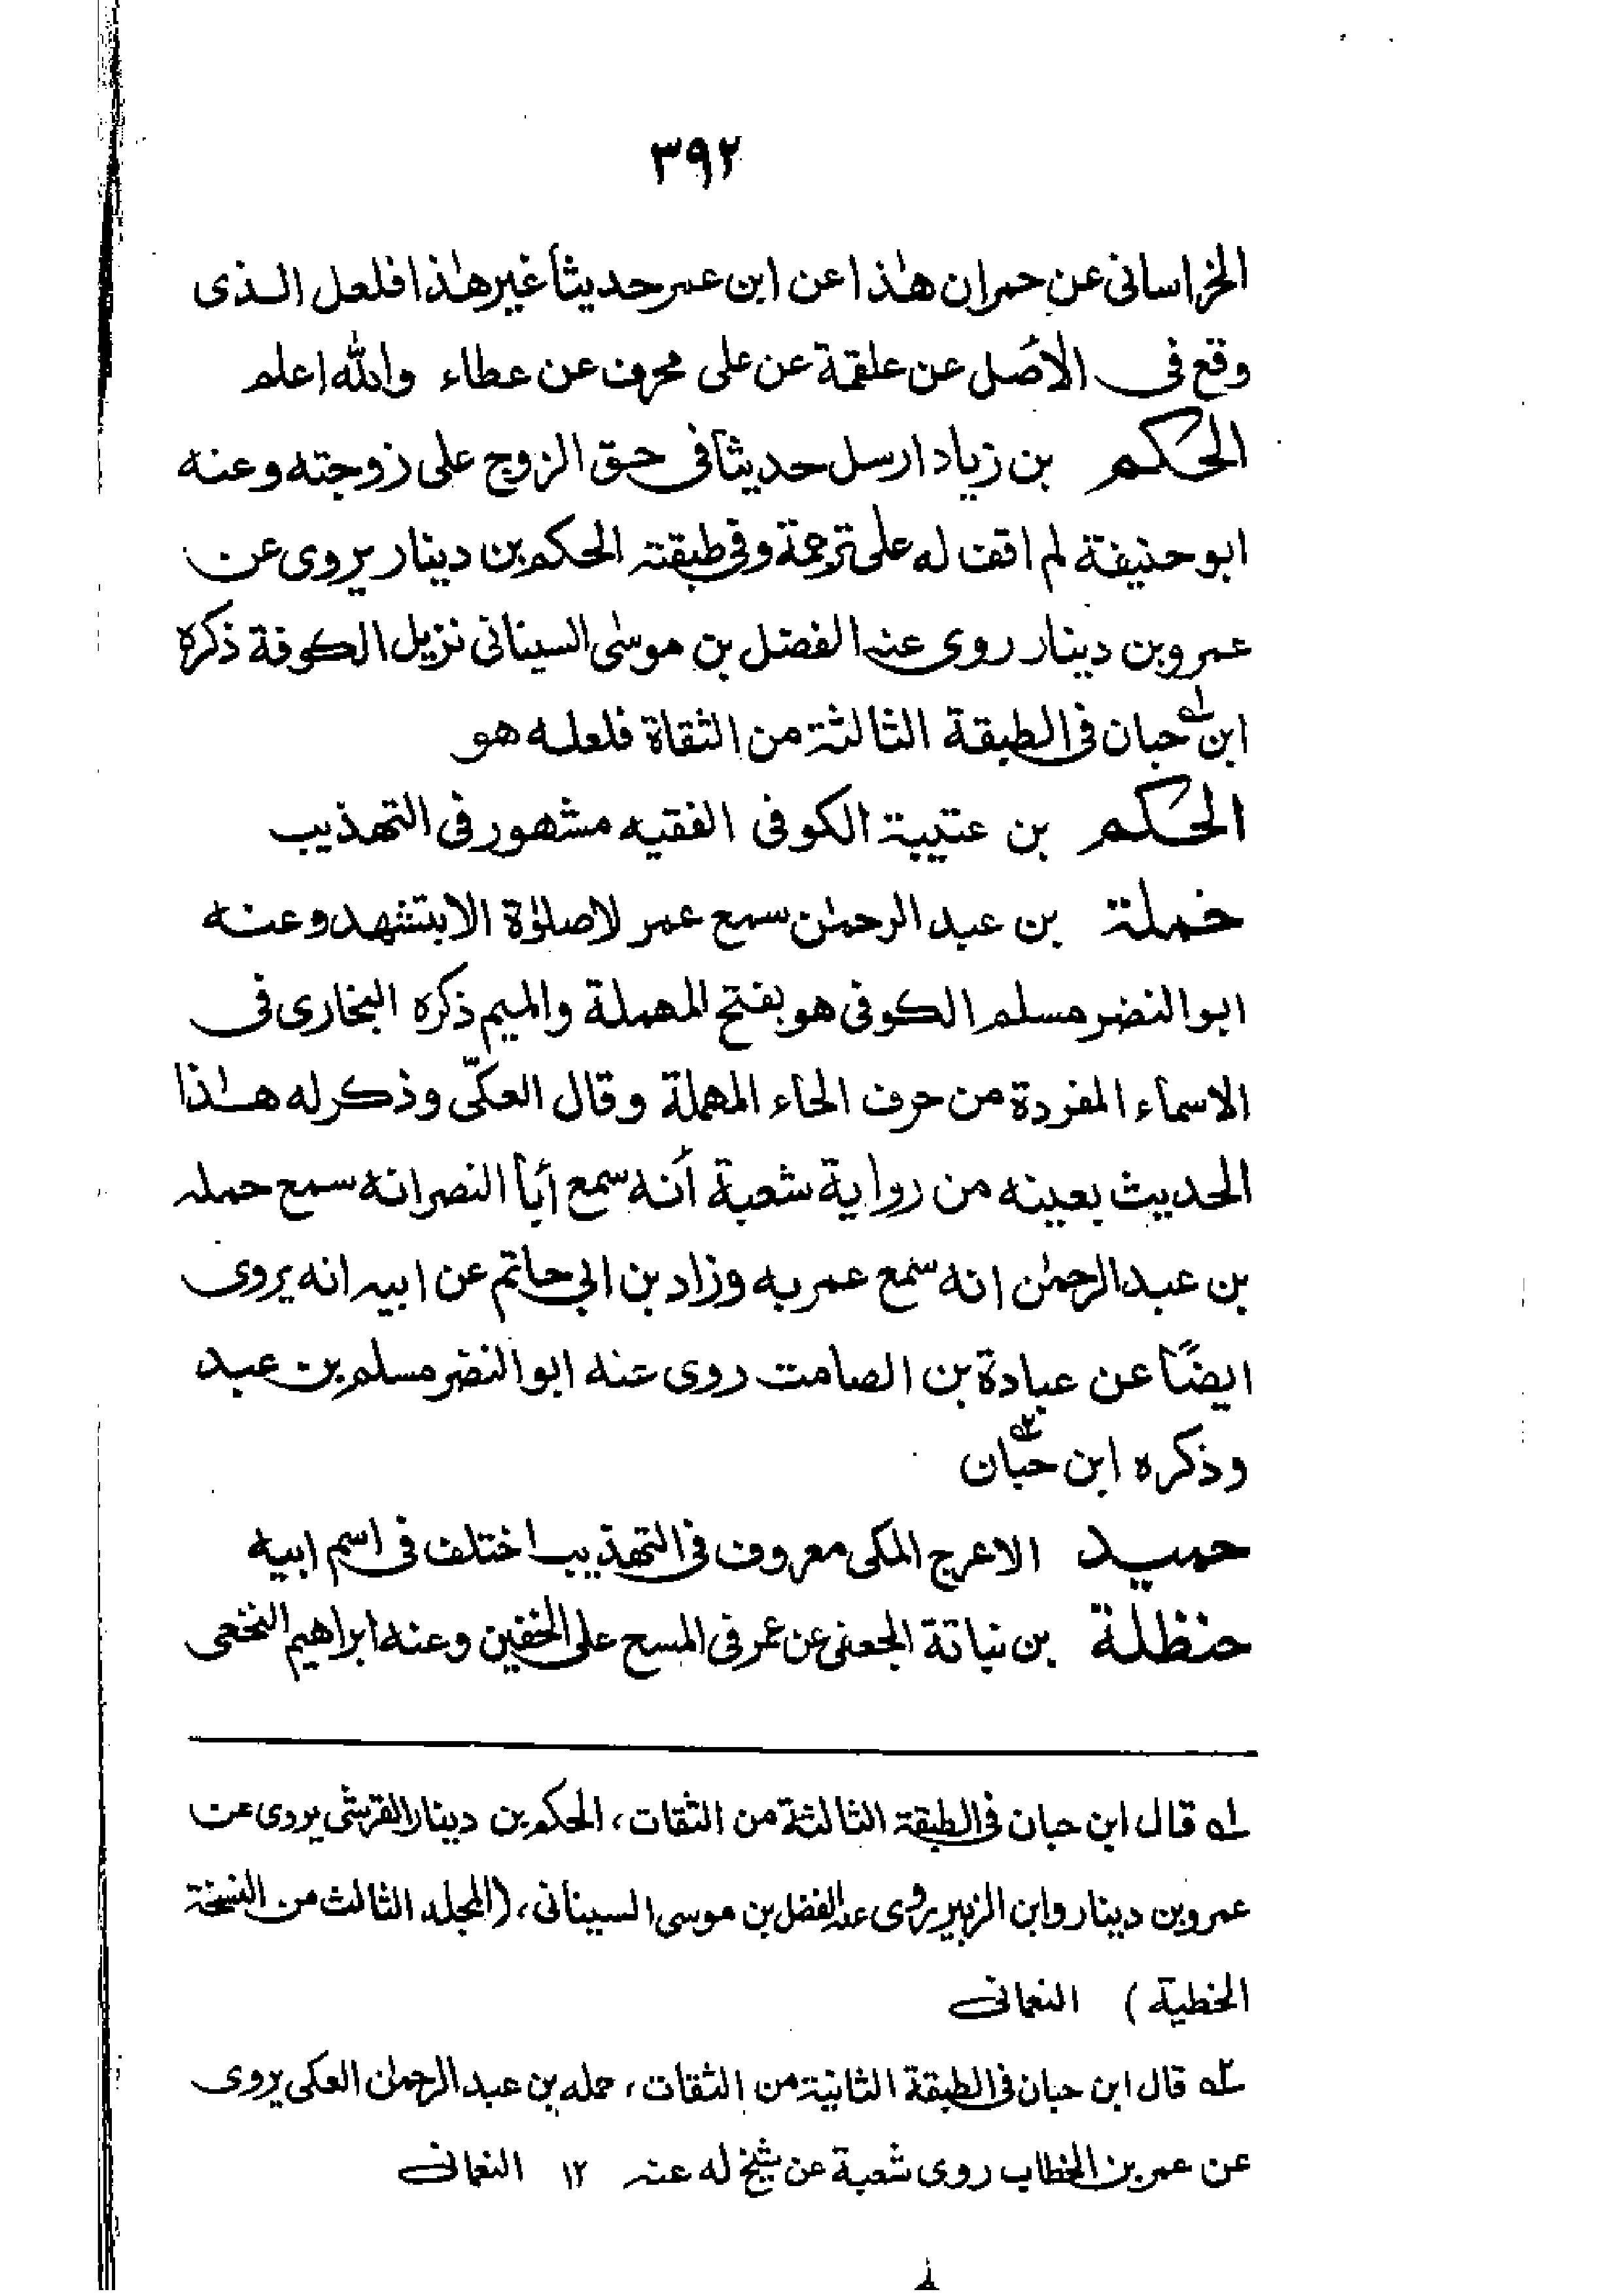 ٣٩٢
الخراسانى عن حمران هٰذا عن ابن عمر حديثاً غير هٰذا فلعل الذى
وقع فى الأصل عن علقمة عن على محرف عن عطاء والله اعلم
الحكم بن زياد ارسل حديثاً فى حق الزوج على زوجته وعنه
ابو حنيفة لم اقف له على ترجمة وفى طبقته الحكم بن دينار يروى عن
عمرو بن دينار روى عنه الفضل بن موسٰى السينانى نزيل الكوفة ذكره
ابن حبان ١ه فى الطبقة الثالثة من الثقاة فلعله هو
الحكم بن عتيبة الكوفى الفقيه مشهور فى التهذيب
حملة بن عبد الرحمٰن سمع عمر لا صلوٰة الا بتشهد وعنه
ابو النضر مسلم الكوفى هو بفتح المهملة والميم ذكره البخارى فى
الاسماء المفردة من حرف الحاء المهملة وقال العكّى وذكر له هٰذا
الحديث بعينه من رواية شعبة أنه سمع أبأ النصر انه سمع حمله
بن عبد الرحمٰن انه سمع عمر به وزاد بن ابى حاتم عن ابيه انه يروى
ايضًا عن عبادة بن الصامت روى عنه ابو النضر مسلم بن عبد
وذكره ابن حبّان ٢ه
حميد الاعرج المكى معروف فى التهذيب اختلف فى اسم ابيه
حنظلة بن نباتة الجعفى عن عمر فى المسح على الخفين وعنه ابراهيم النخعى
١ه قال ابن حبان فى الطبقة الثالثة من الثقات، الحكم بن دينار القرشى يروى عن
عمرو بن دينار وابن الزبير روى عنه الفضل بن موسى السينانى، (المجلد الثالث من النسخة
الخطية) النعمانى
٢ه قال ابن حبان فى الطبقة الثانية من الثقات، حمله بن عبد الرحمٰن العكى يروى
عن عمر بن الخطاب روى شعبة عن شيخ له عنه ١٢ النعمانى